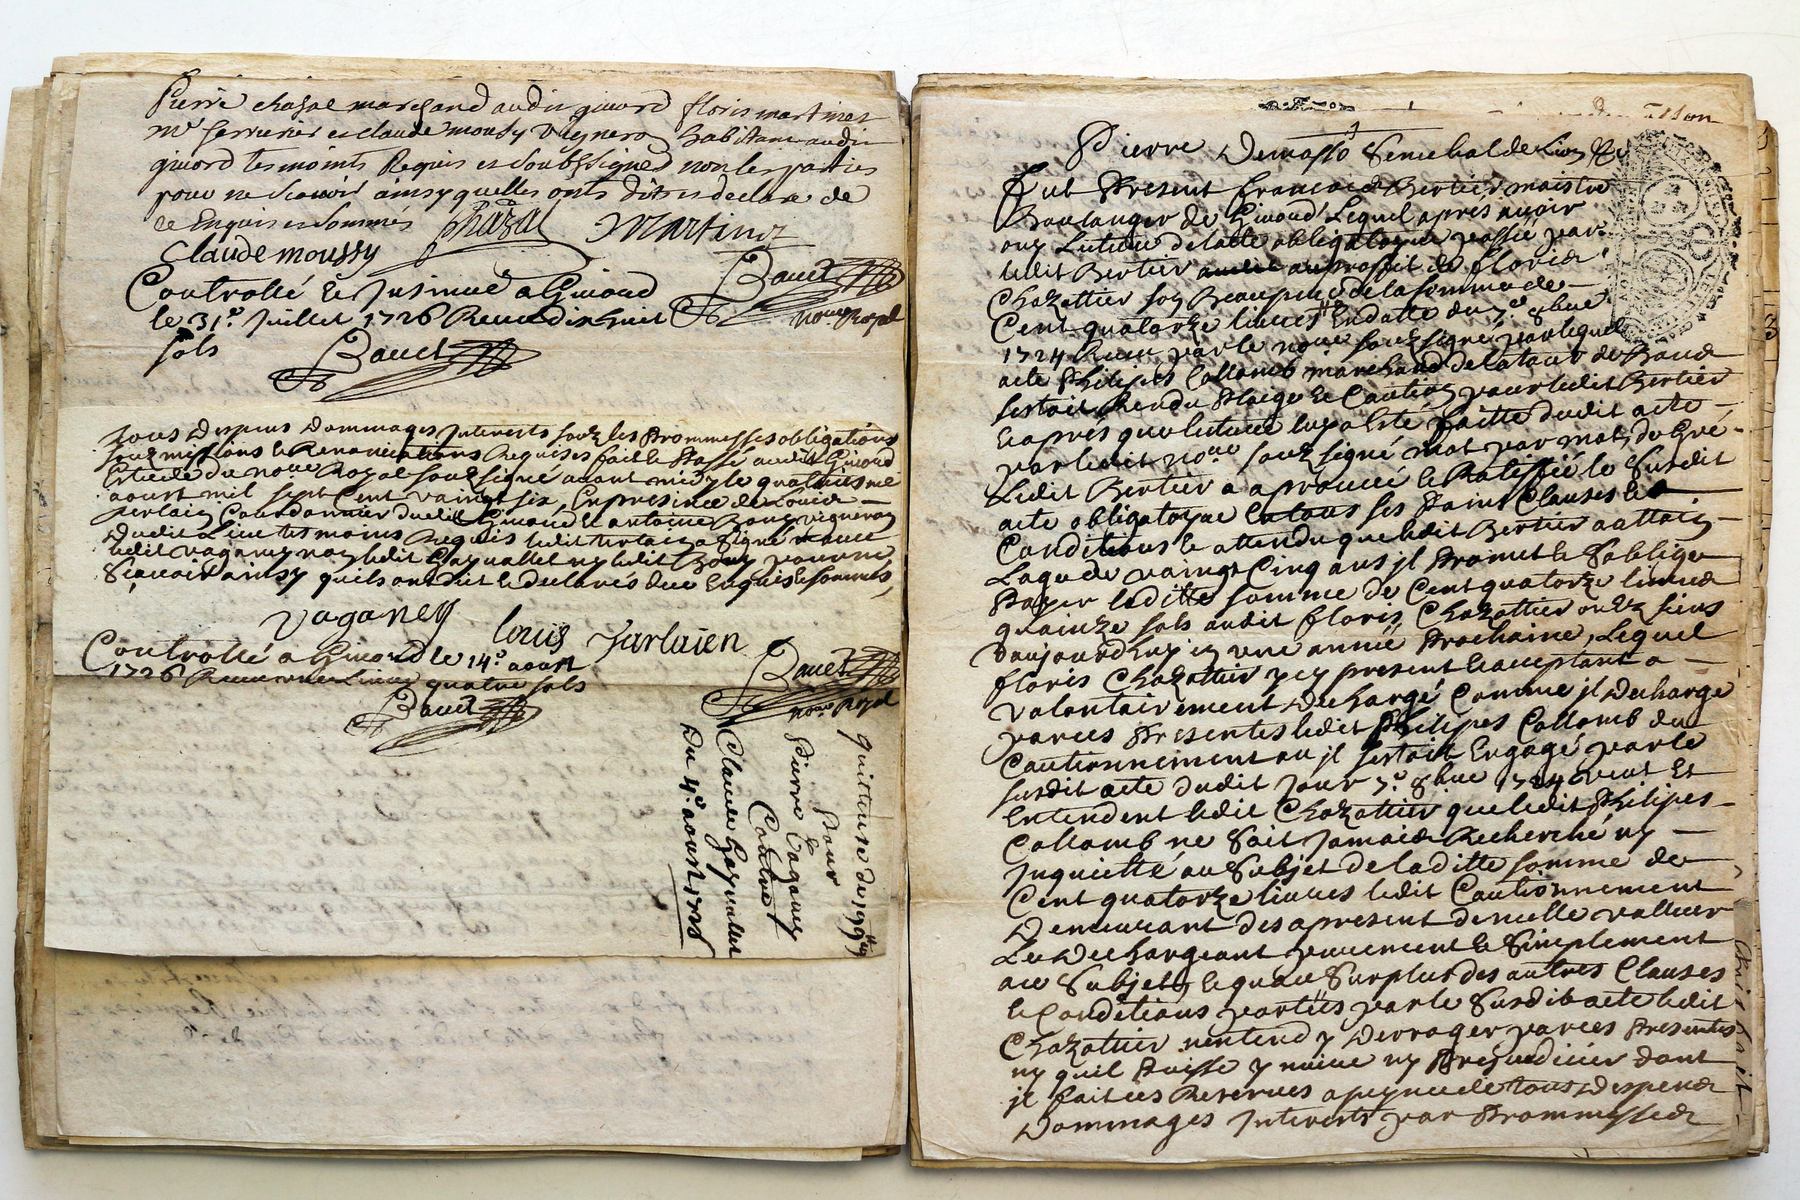 Pierre chazal marchand audit givord floris martinet
me serrurier et claude moussy vigneron habitants audit
givord tesmoints Requis et soubsignes non les parties
pour ne scavoir ainsy quelles onts dit et declaré de
ce Enquis et sommés
chazal
Martinet
Claude moussy
Bauet
nore Royal
Controllé et Insinué a Givord
le 31e Juillet 1726 Receu dix huit
sols
Bauet
tous Despens Dommages Interests soubz les Prommesses obligations
soubmissions et Renonciations Requises fait et Passé audit Givord
Estude du nore Royal soussigné avant midy le quatriesme
aoust mil sept Cent vaingt six, En presence de Louis
terlain Courdonnier dudit Givord et antoine Bony vigneron
dudit Lieu tesmoins Requis ledit terlain a signé avec
ledit vaganey non ledit Gayvallet ny ledit Bony pour ne
Scavoir ainsy quils ont dit et declarés de ce Enquis et sommés,
Vaganey
louis Tarlaien
Controllé a Givord le 14e aoust
1726 Receu une Livre quatre sols
Bauet
Bauet
nore Royal
quittance de 199 tt
Pour
Pierre Vaganey
&
Contre
Claude Gayvallet
Du 4e aoust 1726
Pierre Demasso Senechal de Lion &c
Fut Present francois Bertier maistre
Boulanger de Givord Lequel aprés avoir
ouy Lecture de lacte obligatoyre passé par
ledit Bertier au proffit de floris
Chazottier son Beaupere de la somme de
Cent quatorze livres En datte du 7e 8bre
1724 Receu par le nore soubzsigné par lequel
acte Philipes Collomb marchand
sestoit Rendu Plaige et Caution pour ledit Bertier
Et aprés que lecture luy a esté faitte dudit acte
par ledit nore soubzsigné mot par mot, du Gré
Ledit Bertier a aprouvé et Ratiffié le Susdit
acte obligatoyre En tous ses Points Clauses et
Conditions et attendu que ledit Bertier a attaint
Lage de vaingt Cinq ans jl Promet et Soblige
Payer ladite somme de Cent quatorze livres
quainze sols audit floris Chazottier ou ez siens
Daujourdhuy en une année Prochaine, Lequel
floris Chazottier ycy present et acceptant a
volontairement Decharge Comme jl Decharge
par ces Presentes ledit Philipes Collomb du
Cautionnement ou jl sestoit Engagé par le
susdit acte dudit Jour 7e 8bre 1724 veut Et
Entendent ledit Chazottier que ledit Philipes
Collomb ne Soit Jamais Recherché ny
Inquietté au Subjet de ladite somme de
Cent quatorze livres ledit Cautionnement
Demeurant des apresent de nulle valleur
Le Dechargeant purement et Simplement
a ce Subjet, Et quau Surplus des autres Clauses
et Conditions portées par le Susdit acte ledit
Chazottier nentend y Derroger par ces Presentes
ny quil Puisse y nuire ny Préjudicier dont
jl fait ces Reserves a peyne de tous Despens
Dommages Interests par Prommesses